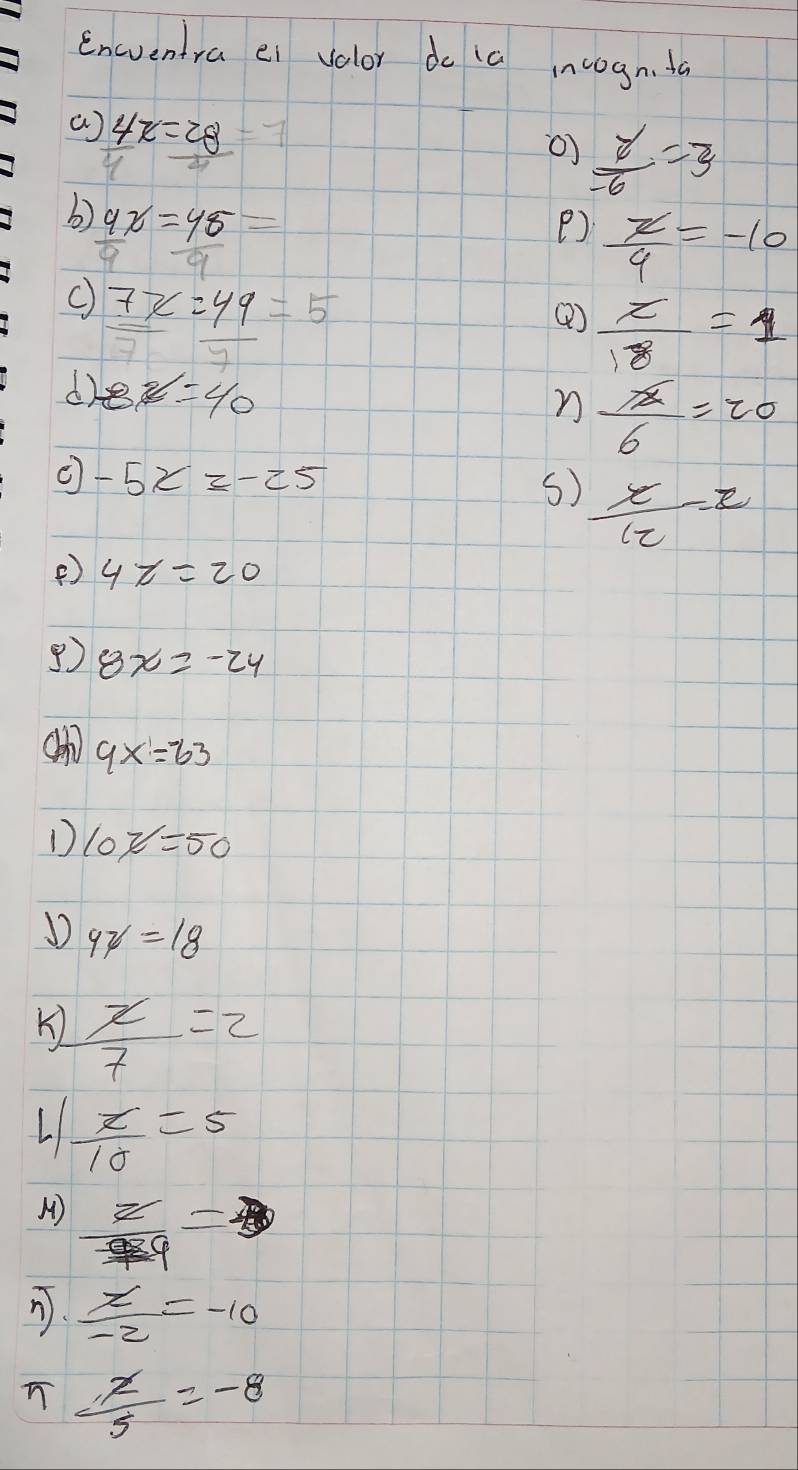 Encuentra el valor de la incognita
a) 4x/4 = 28/4 = 7
b) 9x/9 = 45/9 =
c) 7x/7 = 49/7 = 5
d) 8x = 40
e) -5x = -25
f) 4x = 20
g) 8x = -24
h) 9x = 63
i) 10x = 50
J) 9x = 18
K) x/7 = 2
L) x/10 = 5
M) x/9 =
n) x/-2 = -10
ñ x/5 = -8
o) x/-6 = 3
P) x/9 = -10
Q) x/18 = 1
r) x/6 = 20
S) x/12 = 2